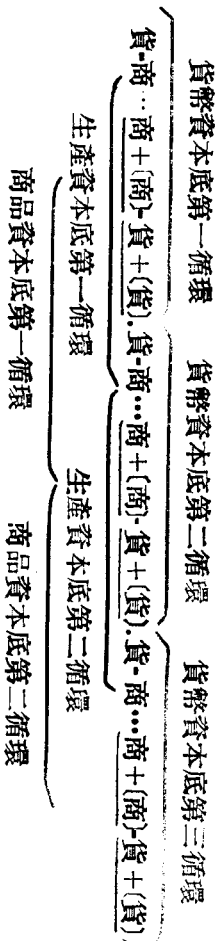 貨幣資本底第一循環 貨幣資本底第二循環 貨幣資本底第三循環
貨-商…商+(商)-貨+(貨).貨-商…商+(商)-貨+(貨).貨-商…商+(商)-貨+(貨)
生產資本底第一循環 生產資本底第二循環
商品資本底第一循環 商品資本底第二循環